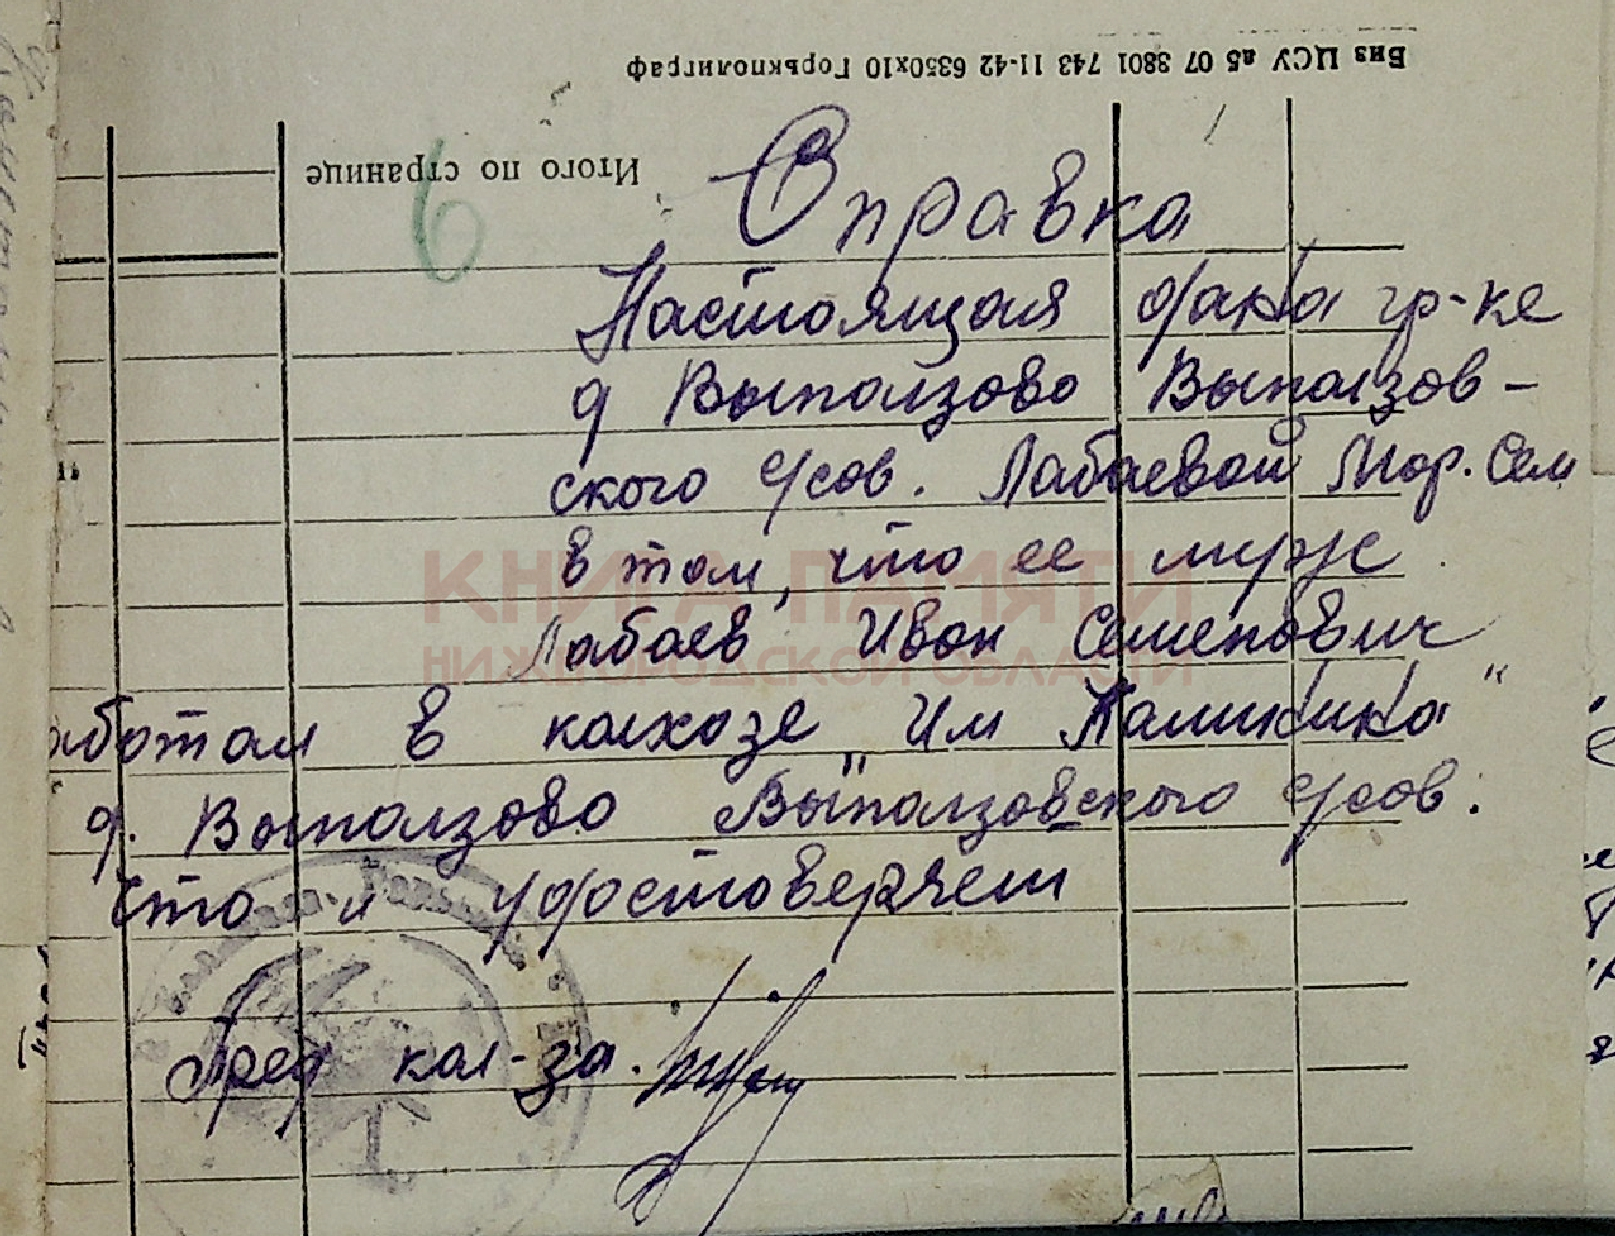 Виз ЦСУ а5 07 3801 743 11-42 6350х10 Горькполиграф
Итого по странице
6
Справка
Настоящая дана гр-ке
д Выползово Выползов-
ского с/сов. Лабаевой Мар. Сем
в том, что ее муж
Лабаев Иван Семенович
аботал в колхозе „Им
д. Выползово Выползовского с/сов.
что и удостоверяем
Пред кол-за.
КНИГА ПАМЯТИ
НИЖЕГОРОДСКОЙ ОБЛАСТИ